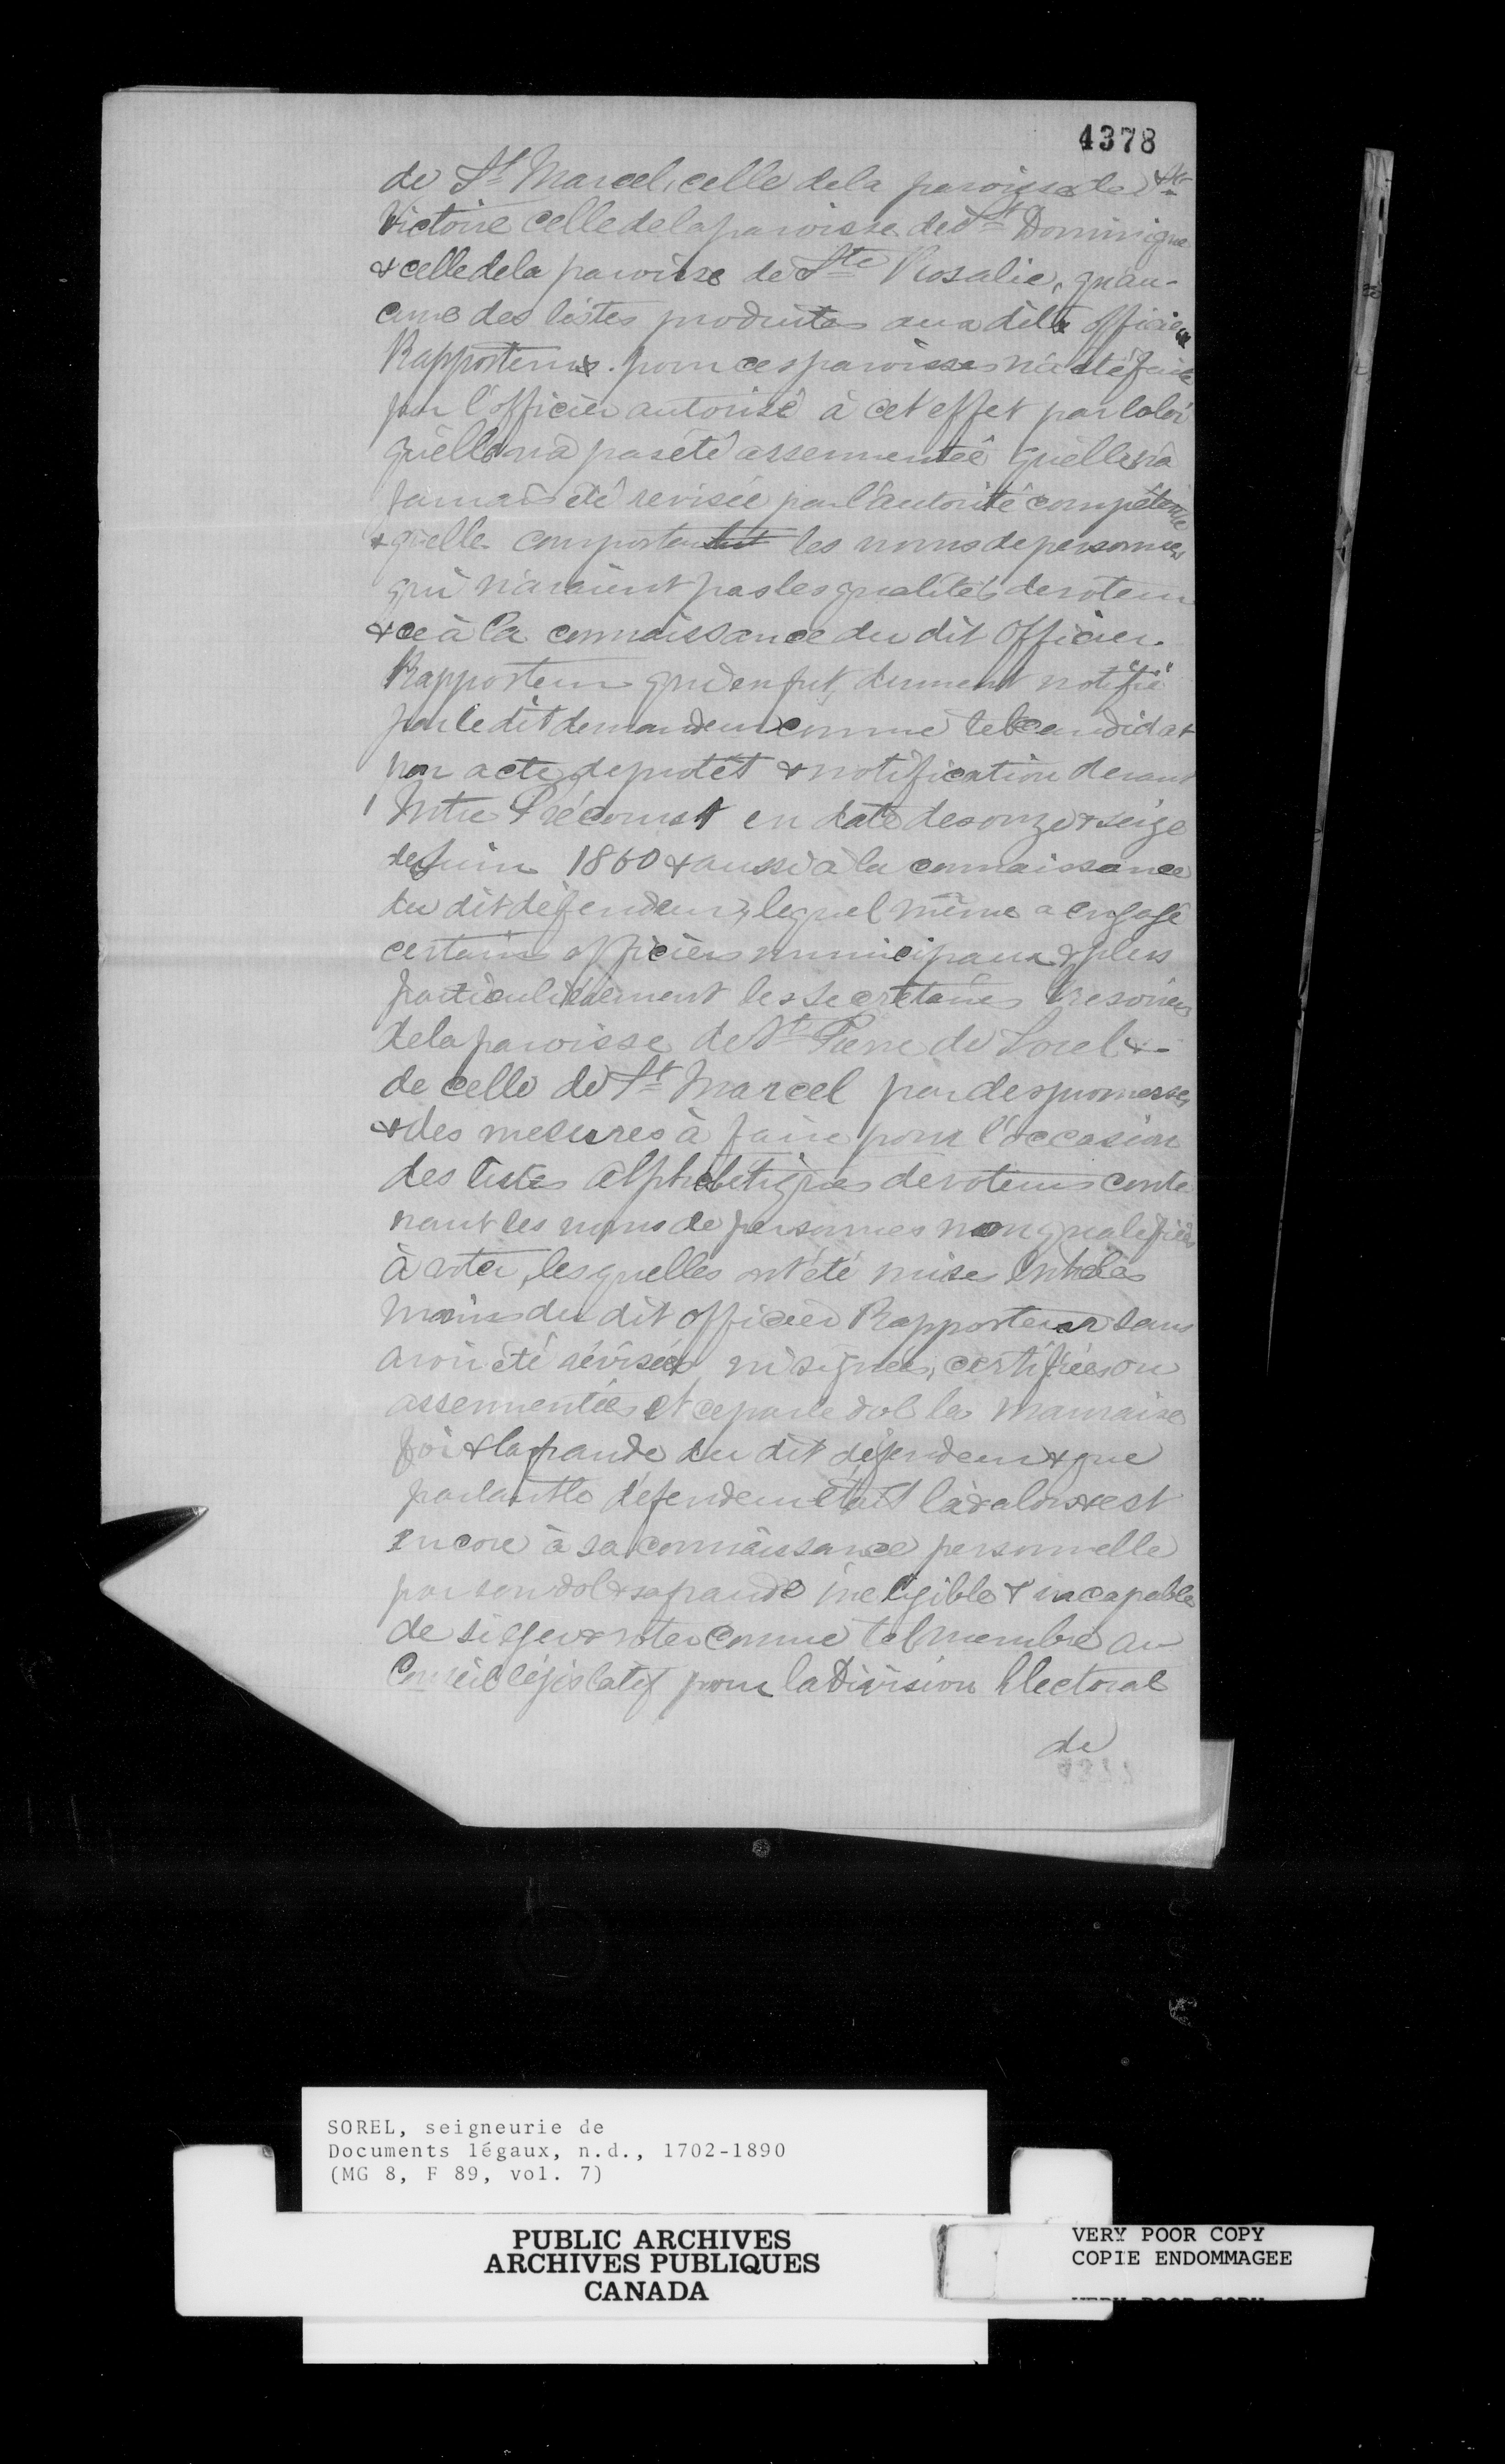 4378
de St Marcel, celle de la paroisse de Ste
Victoire celle de la paroisse de St Dominique
& celle de la paroisse de Ste Rosalie, qu'au-
cune des listes produites aux dits officiers
Rapporteurs pour ces paroisses n'a été faite
par l'officier autorisé à cet effet par la loi
qu'elle n'a pas été assermentée qu'elle n'a
jamais été revisée par l'autorité compétente
& qu'elle comporte les noms de personnes
qui n'avaient pas les qualités de voteur
& ce à la connaissance du dit Officier-
Rapporteur qui en fut dument notifié
par le dit demandeur comme tel candidat
par acte de protêt & notification devant
Mtre Précourt en date des onze & seize
de Juin 1860 & aussi à la connaissance
du dit défendeur, lequel même a engagé
certains officiers municipaux & plus
particulièrement les secrétaires trésoriers
de la paroisse de St Pierre de Sorel &-
de celle de St Marcel par des promesses
& des mesures à faire pour l'occasion
des listes alphabétiques de voteurs conte
nant les noms de personnes non qualifiées
à voter, lesquelles ont été mises entre les
mains du dit officier Rapporteur sans
avoir été révisées ni signées, certifiées ou
assermentées et ce par le dol la mauvaise
foi & la fraude du dit défendeur & que
partant le défendeur était là & alors & est
encore à sa connaissance personnelle
par son dol & sa fraude inéligible & incapable
de siéger & voter comme tel membre au
Conseil législatif pour la Division Electoral
de
SOREL, seigneurie de
Documents légaux, n.d., 1702-1890
(MG 8, F 89, vol. 7)
PUBLIC ARCHIVES
ARCHIVES PUBLIQUES
CANADA
VERY POOR COPY
COPIE ENDOMMAGEE
VERY POOR COPY